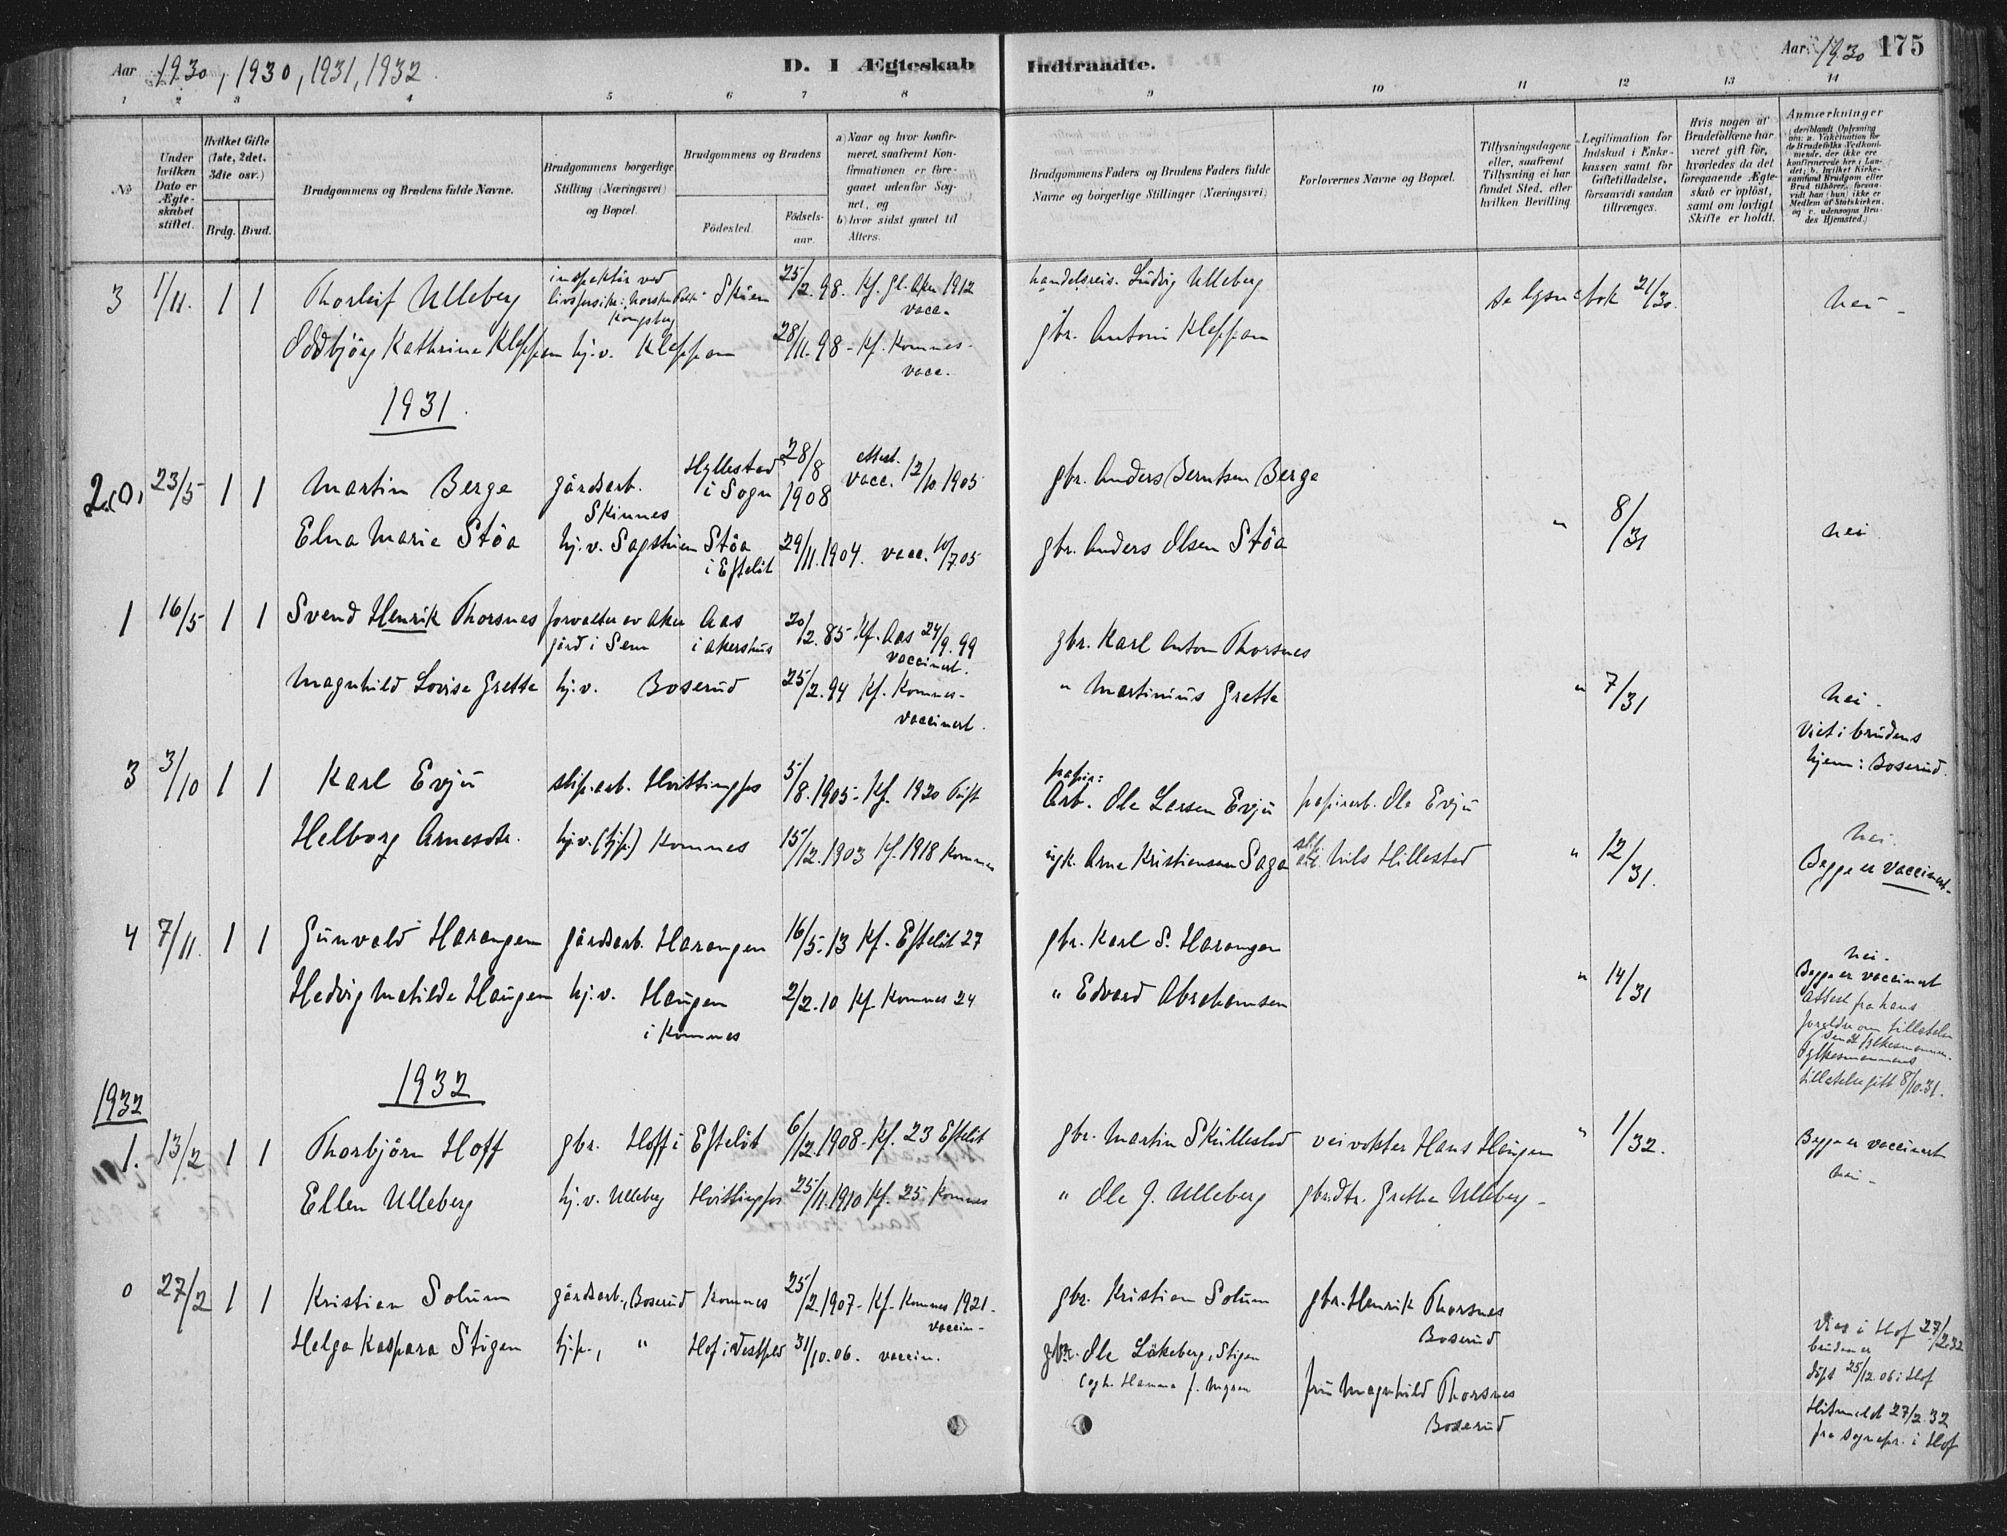 Aar 1930, 1930, 1931, 1932.
D. I Ægteskab Indtraadte.
Aar 1930 175
1 2 3 4 5 6 7 8 9 10 11 12 13 14
№
Under hvilken Dato er Ægteskabet stiftet.
Hvilket Gifte (1ste, 2det. 3die osv.)
Brdg. Brud.
Brudgommens og Brudens fulde Navne.
Brudgommens borgerlige Stilling (Næringsvei) og Bopæl.
Brudgommens og Brudens
Fødested.
Fødsels-aar.
a) Naar og hvor konfirmeret, saafremt Konfirmationen er foregaaet udenfor Sognet, og
b) hvor sidst gaaet til Alters.
Brudgommens Faders og Brudens Faders fulde Navne og borgerlige Stillinger (Næringsvei)
Forlovernes Navne og Bopæl.
Tillysningsdagene eller, saafremt Tillysning ei har fundet Sted, efter hvilken Bevilling
Legitimation for Indskud i Enkekassen samt for Giftetilladelse, forsaavidt saadan tiltrænges.
Hvis nogen af Brudefolkene har været gift før, hvorledes da det foregaaende Ægteskab er opløst, samt om lovligt Skifte er holdt.
Anmærkninger
3 1/11. 1 1 Thorleif Ulleberg inspektør ved Kongsberg Skien 25/2.98. Kf. Gl. Aker 1912 vacc. handelsreis. Ludvig Ulleberg se lysnebok 21/30. nei
Oddbjørg Kathrine Kleppen hj.v. Kleppen 28/11.98 - Kf. Komnes - vacc. gbr. Anton Kleppen
1931.
2 23/5 1 1 Martin Berge gårdsarb. Skinnes Hyllestad i Sogn 28/8 1908 Attest. vacc. 12/10 1905 gbr. Anders Berntsen Berge
Elna Marie Støa hj.v. Sagstuen Støa i Efteløt 29/11.1904. vacc. 10/7.05 gbr. Anders Olsen Støa " 8/31 nei
1 16/5 1 1 Svend Henrik Thorsnes forvalter av Aker gård i Sem Aas i Akershus 20/2.85 Kf. Aas 24/9.99 vaccinert. gbr. Karl Anton Thorsnes
Magnhild Lovise Grette hj.v. Boserud 25/2.94 Kf. Komnes - vaccinert. " Martinius Grette " 7/31 nei.
Viet i brudens hjem: Boserud.
3 3/10 1 1 Karl Evju slip.arb. Hvittingfos 5/8.1905 - Kf. 1920 Tuft papir: Arb. Ole Larsen Evju papirarb. Ole Evju
Helborg Arnesdtr. hj.v. (hjp.) Komnes 15/12.1903 Kf. 1918 Komnes Arne Kristiansen Saga Nils Hillestad " 12/31. nei.
Begge er vaccinert.
4 7/11. 1 1 Gunvald Harangen gårdsarb. Harangen 16/5.13 Kf. Efteløt 27 gbr. Karl S. Harangen
Hedvig Matilde Haugen hj.v. Haugen i Komnes 2/2.10 Kf. Komnes 24 " Edvard Abrahamsen " 14/31 nei.
Begge er vaccinert
Attest fra hans foreldre om tillatelse sendt fylkesmannen.
Fylkesmannens tillatelse gitt 8/10.31.
1932
1932
1. 13/2 1 1 Thorbjørn Hoff gbr. Hoff i Efteløt 6/12.1908 - Kf. 23 Efteløt gbr. Martin Skullestad veivokter Hans Haugen " 1/32. Begge er vaccinert
Ellen Ulleberg hj.v. Ulleberg Hvittingfos 25/11.1910 Kf. 25 Komnes " Ole J. Ulleberg gbr.dtr. Grethe Ulleberg - nei -
0 27/2 1 1 Kristian Solum gårdsarb., Boserud Komnes 25/2.1907 - Kf. Komnes 1921 - vaccin - gbr. Kristian Solum gbr. Henrik Thorsnes Boserud
Helga Kaspara Stigen hjp., " Hof i Vestfold 31/10.06. vaccin. gbr. Ole Løkeberg, Stigen fru Magnhild Thorsnes Boserud
Viet i Hof 27/2.32
bruden er døpt 25/12.06 i Hof
Hitmeldt 27/2.32 fra sognepr. i Hof